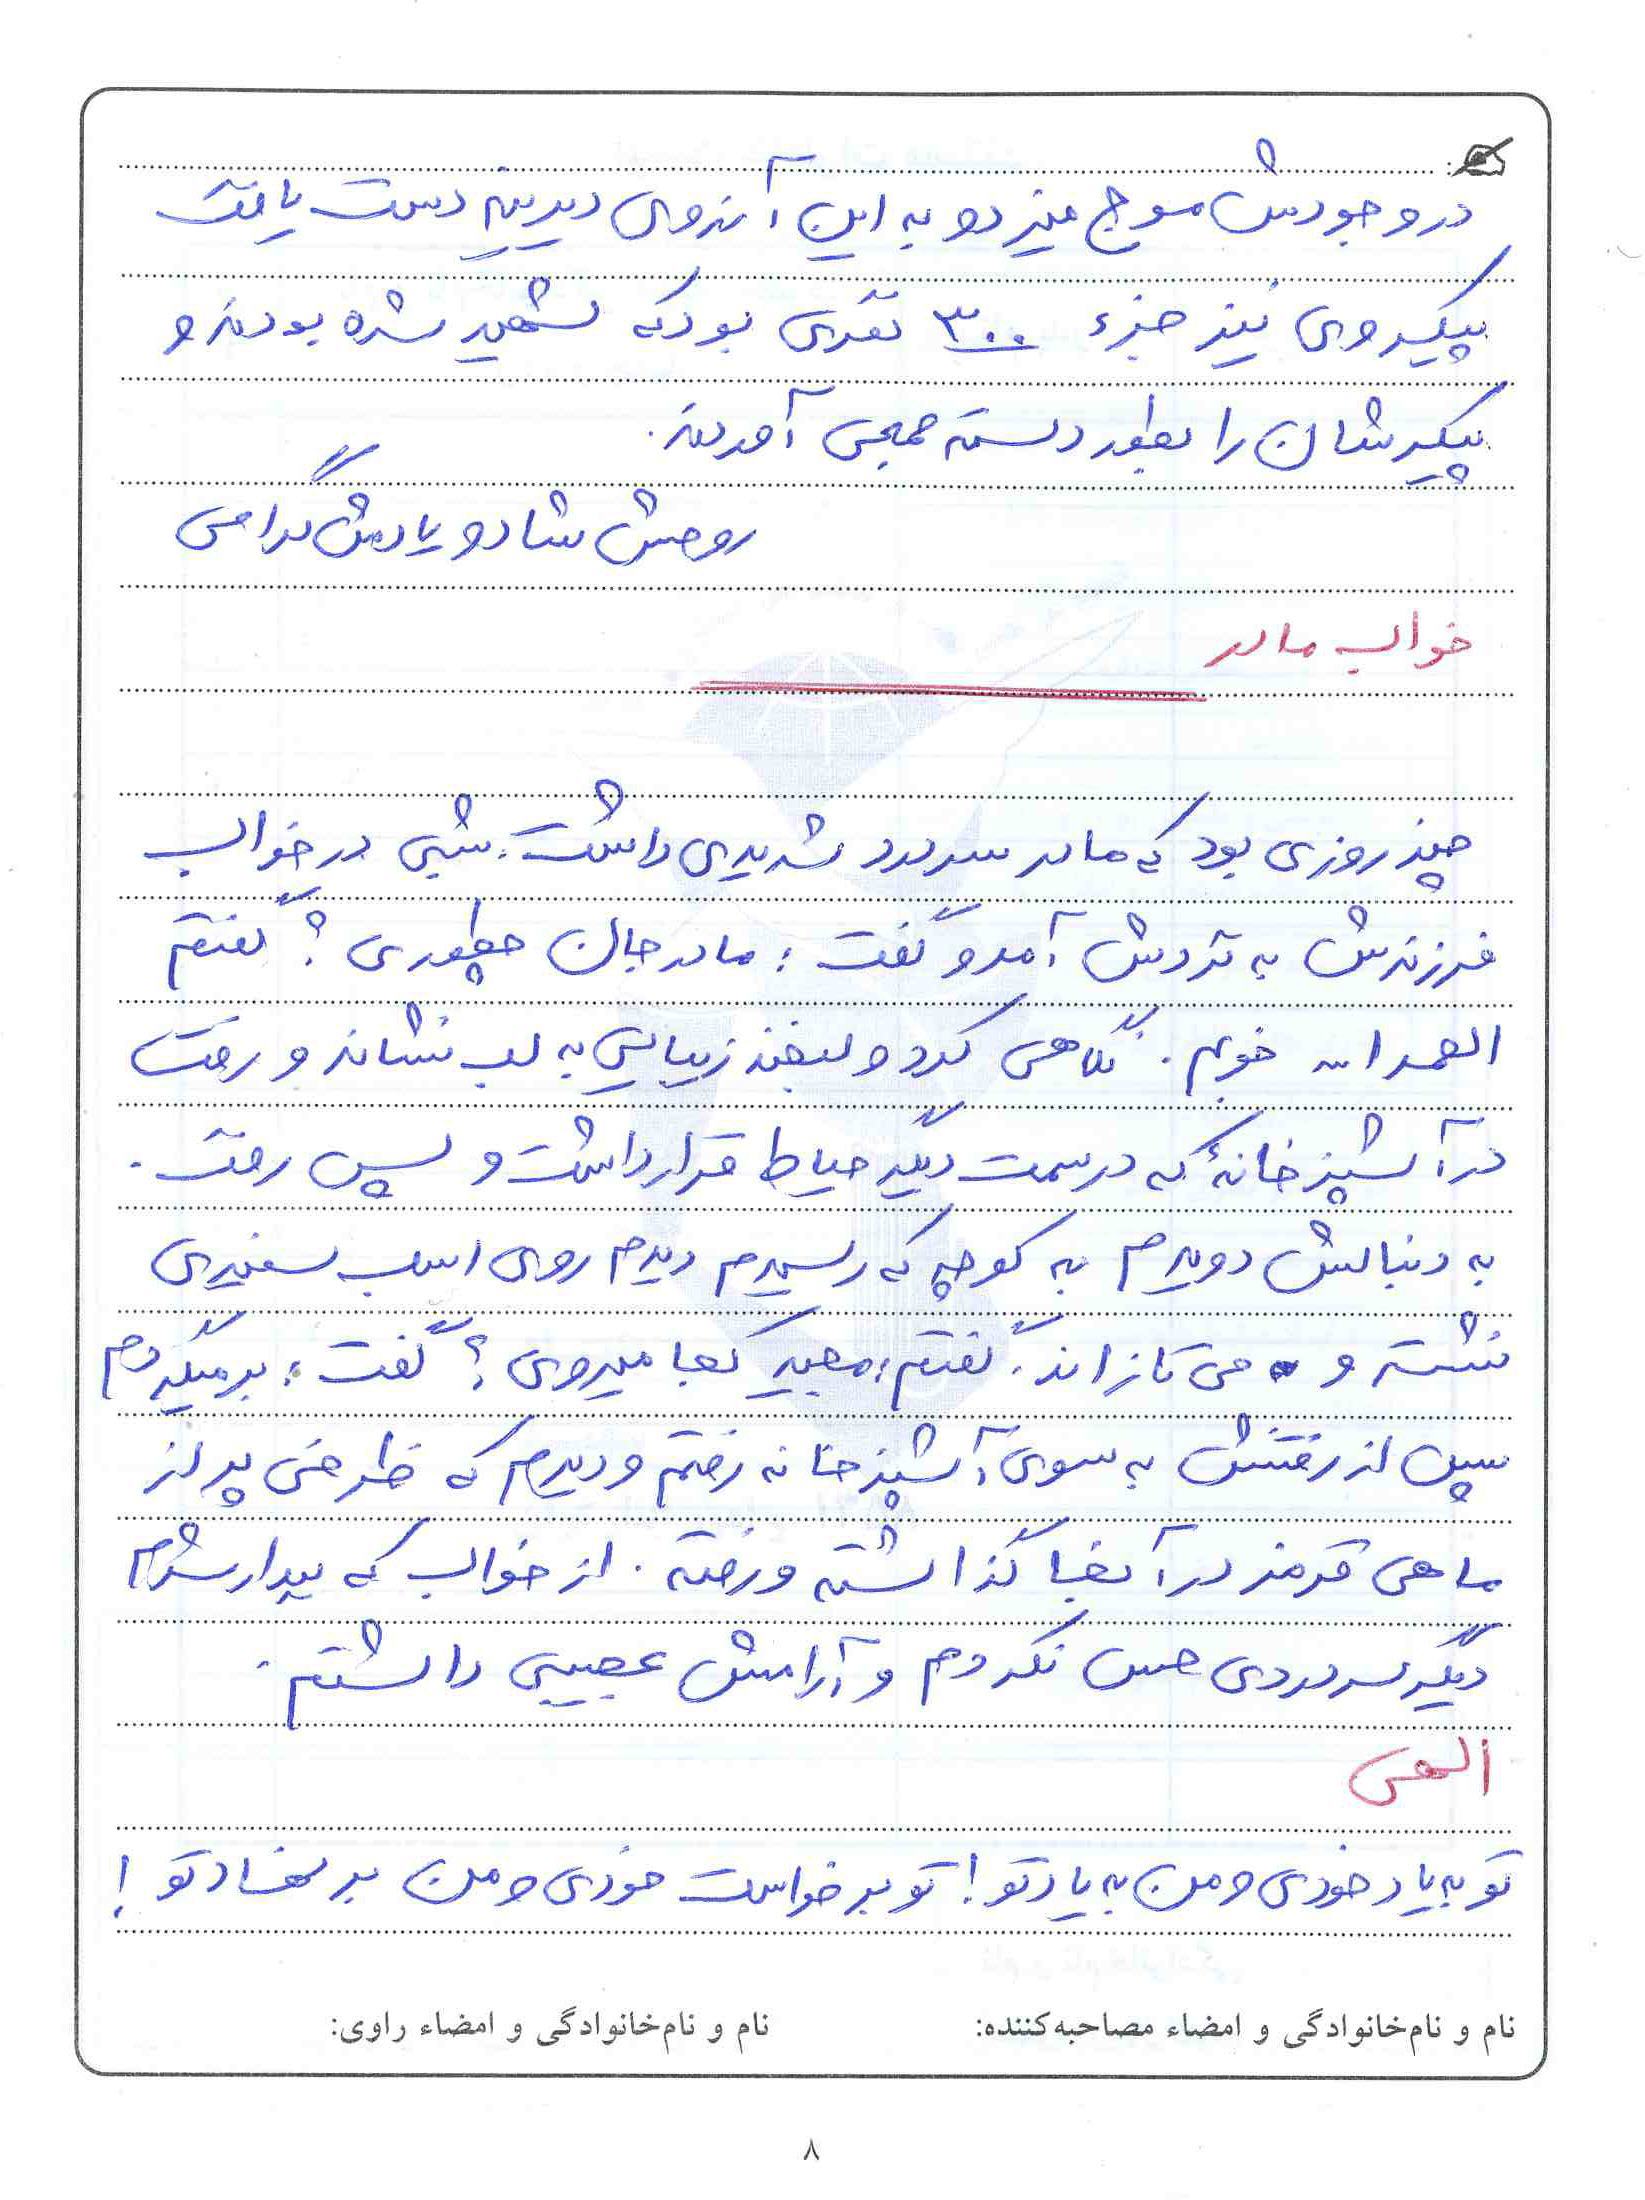 در وجودش موج میزد و به این آرزوی دیرینه دست یافت
پیکر وی نیز جزء ۳۰۰ نفری بود که شهید شده بودند و
پیکرشان را بطور دسته جمعی آوردند.
روحش شاد و یادش گرامی
خواب مادر
چند روزی بود که مادر سردرد شدیدی داشت. شبی در خواب
فرزندش به نزدش آمد و گفت: مادر جان چطوری؟ گفتم
الحمدالله خوبم. نگاهی کرد و لبخند زیبایی به لب نشاند و رفت
در آشپزخانهٔ که در سمت دیگر حیاط قرار داشت و سپس رفت.
به دنبالش دویدم به کوچه که رسیدم دیدم روی اسب سفیدی
نشسته و می تازاند. گفتم: مجید کجا میروی؟ گفت: برمیگردم
سپس از رفتنش به سوی آشپزخانه رفتم و دیدم که ظرفی پر از
ماهی قرمز در آنجا گذاشته و رفته. از خواب که بیدار شدم
دیگر سردردی حس نکردم و آرامش عجیبی داشتم.
الهی
تو به یاد خودی و من به یاد تو! تو بر خواست خودی و من بر نهاد تو!
نام و نام‌خانوادگی و امضاء مصاحبه‌کننده: نام و نام‌خانوادگی و امضاء راوی:
۸